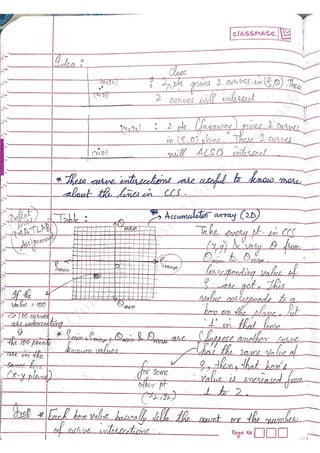 CLASSMATE
Idea :
Close
(x2,y2)
: 2 pts gives 2 curves in (ξ,θ). These
(x1,y1)
2 curves will intersect
(x2,y2) : 2 pts (faraway) gives 2 curves
in (ξ,θ) plane. These 2 curves
(x1,y1)
will ALSO intersect
* These curve intersections are useful to know more
about the lines in CCS.
Table :
Accumulator array (2D)
MATLAB
Assignment
θmin
Take every pt. in CCS
(x,y) & vary θ from
θmin to θmax.
ξmin
ξmax
Corresponding value of
ξ are got. This
value corresponds to a
box on the plane. Put
'1' in that box
θmax
If the
value = 100
=> 100 curves
are intersecting
the 100 points
are in the
same line
(x-y plane)
* ξmin, ξmax, θmin & θmax are
known values.
Suppose another curve
has the same value of
ξ, then, that box's
value is increased from
1 to 2.
for some
other pt
(x2,y2)
* Each box value basically tells the count or the number
of curve intersections.
Page No